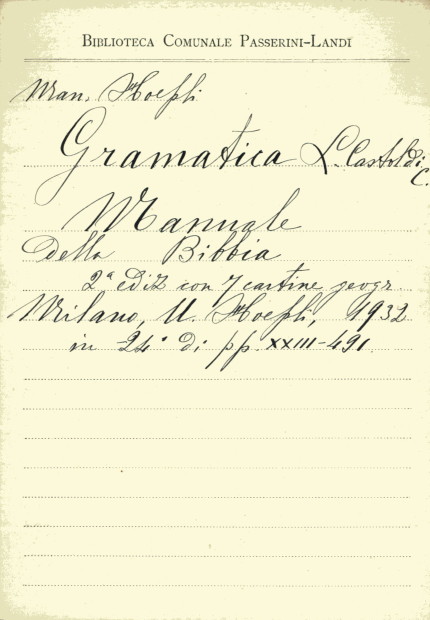 Biblioteca Comunale Passerini-Landi
Man. Hoepli
Gramatica L. Castoldi C.
Manuale
della Bibbia
2ª ediz con 7 cartine geogr.
Milano, U. Hoepli, 1932
in 24° di pp. XXIII-491